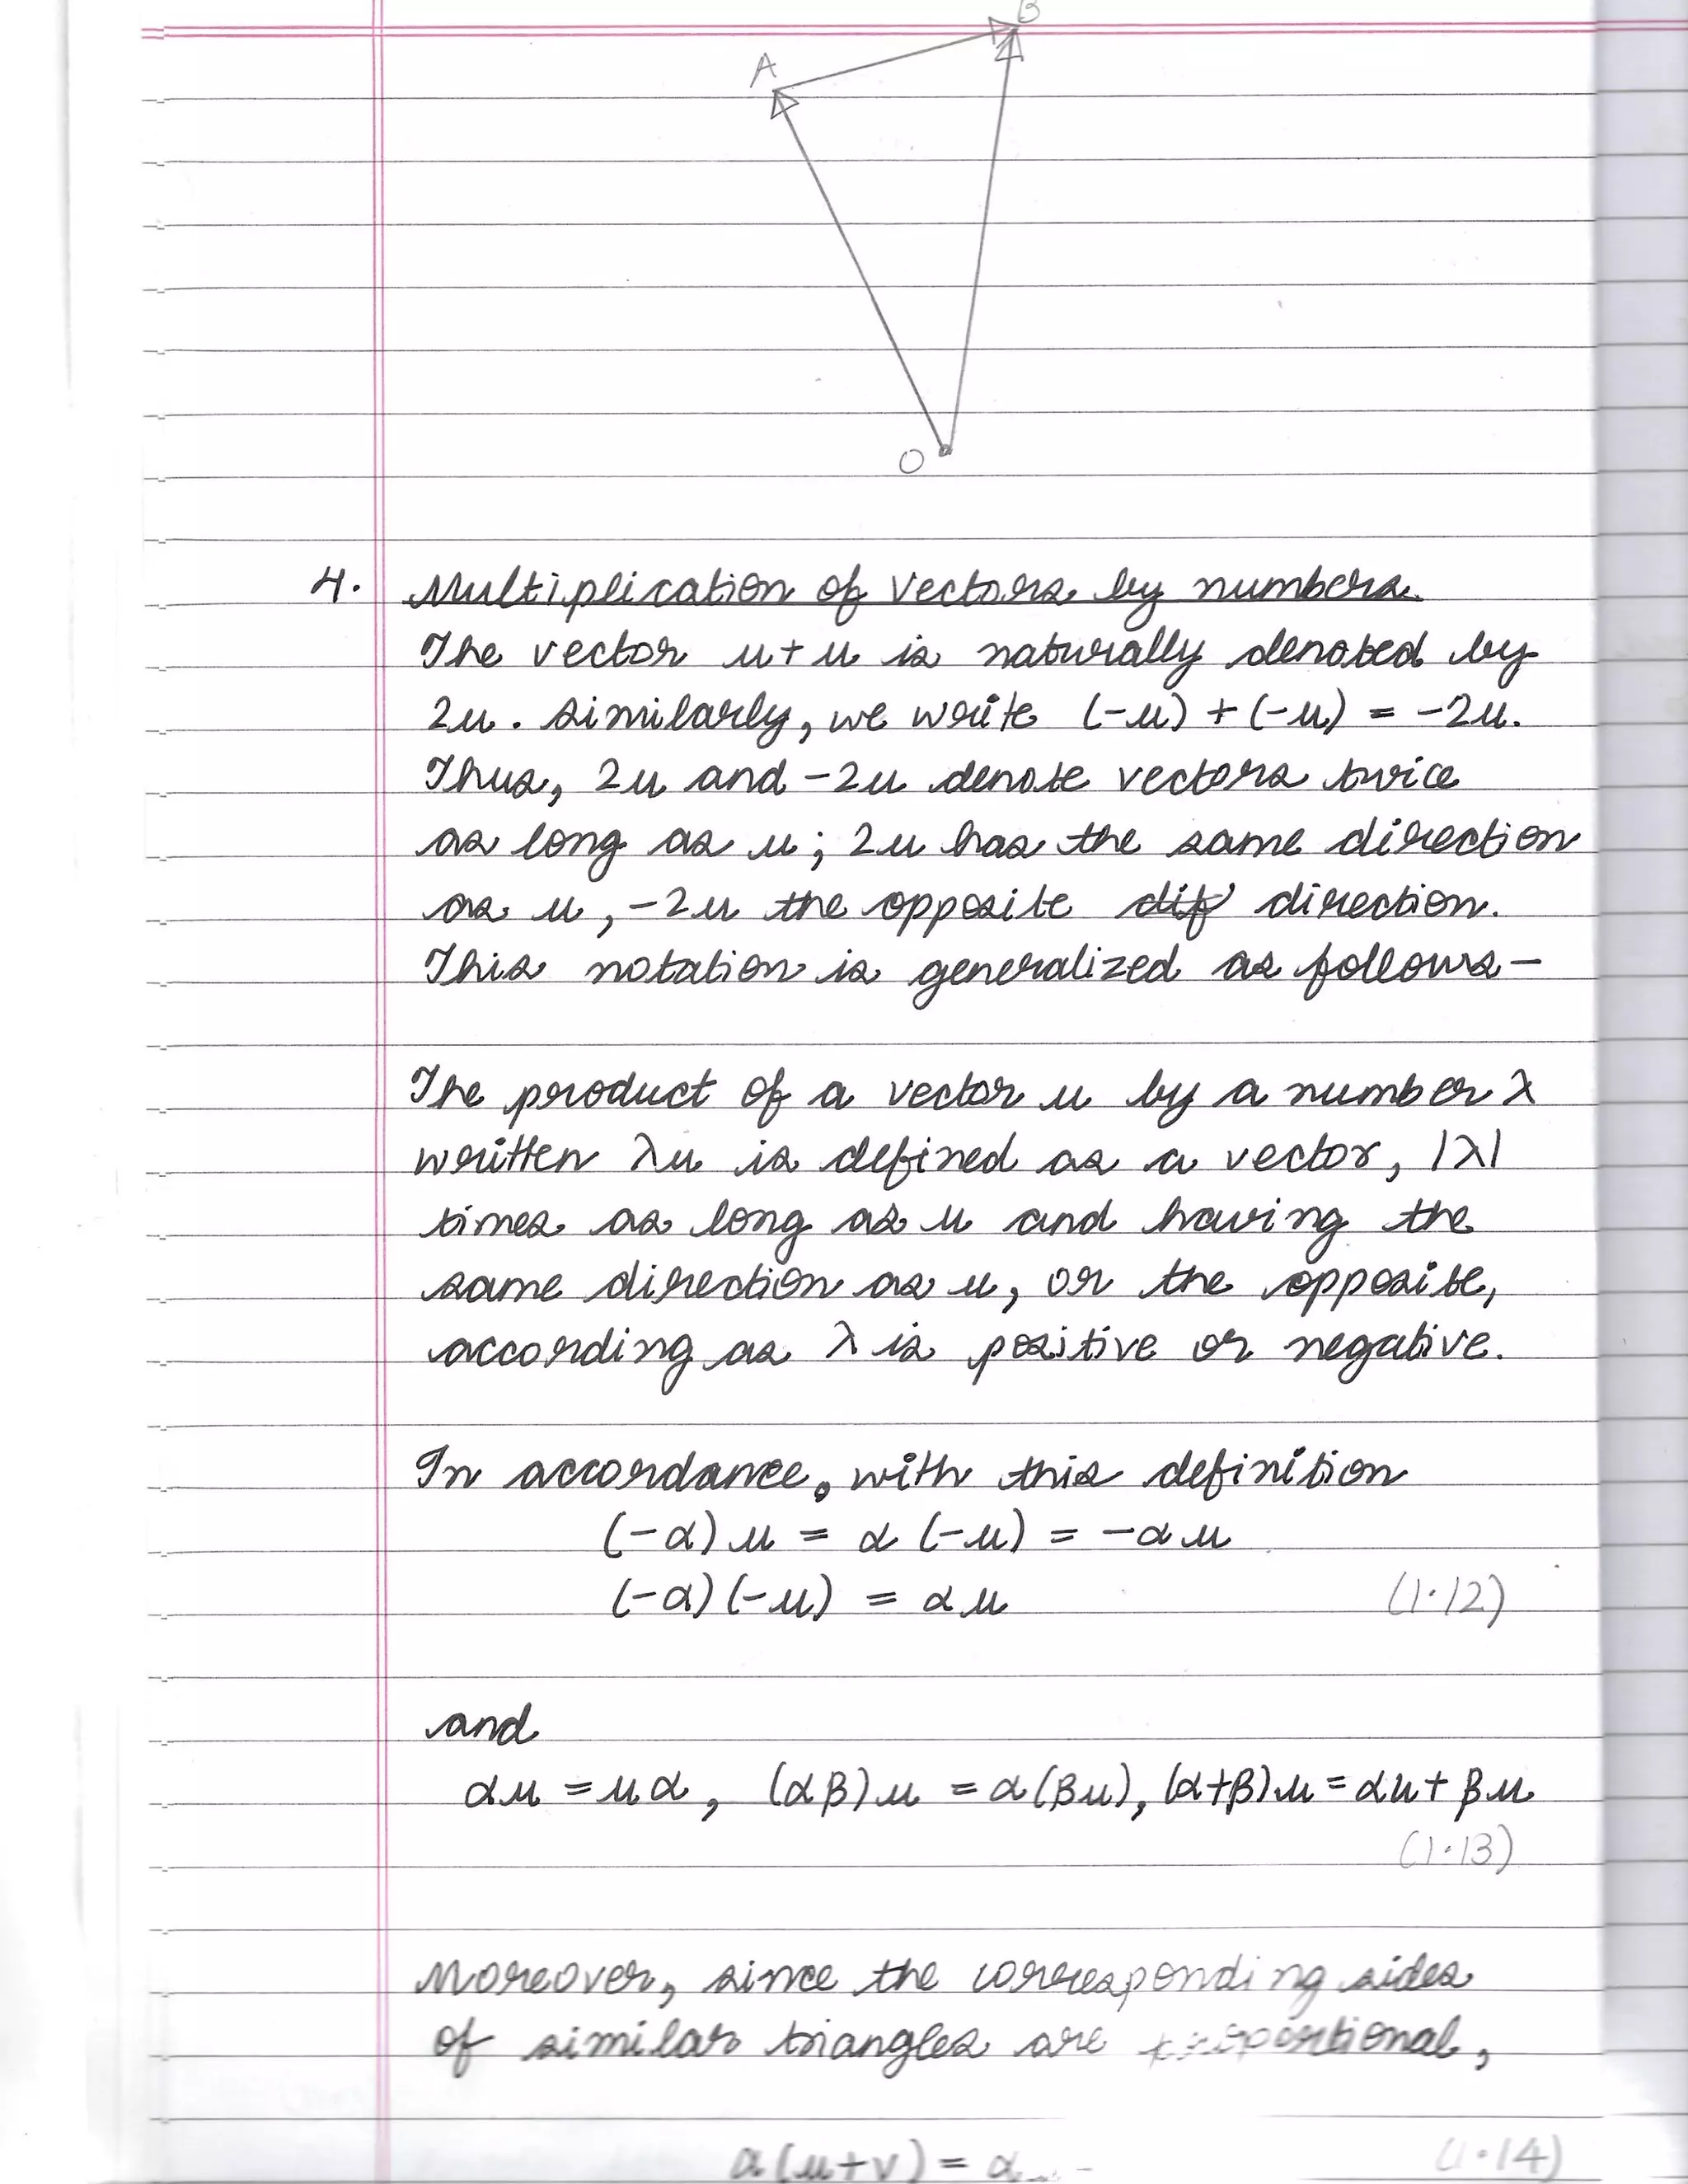 B
A
O
4. Multiplication of vectors by numbers.
The vector u+u is naturally denoted by
2u. Similarly, we write (-u) + (-u) = -2u.
Thus, 2u and -2u denote vectors twice
as long as u; 2u has the same direction
as u, -2u the opposite dif direction.
This notation is generalized as follows-
The product of a vector u by a number λ
written λu is defined as a vector, |λ|
times as long as u and having the
same direction as u, or the opposite,
according as λ is positive or negative.
In accordance, with this definition
(-α) u = α (-u) = -α u
(-α) (-u) = α u (1.12)
and
αu = uα, (αβ)u = α(βu), (α+β)u = αu + βu
(1.13)
Moreover, since the corresponding sides
of similar triangles are proportional,
α(u+v) = α (1.14)